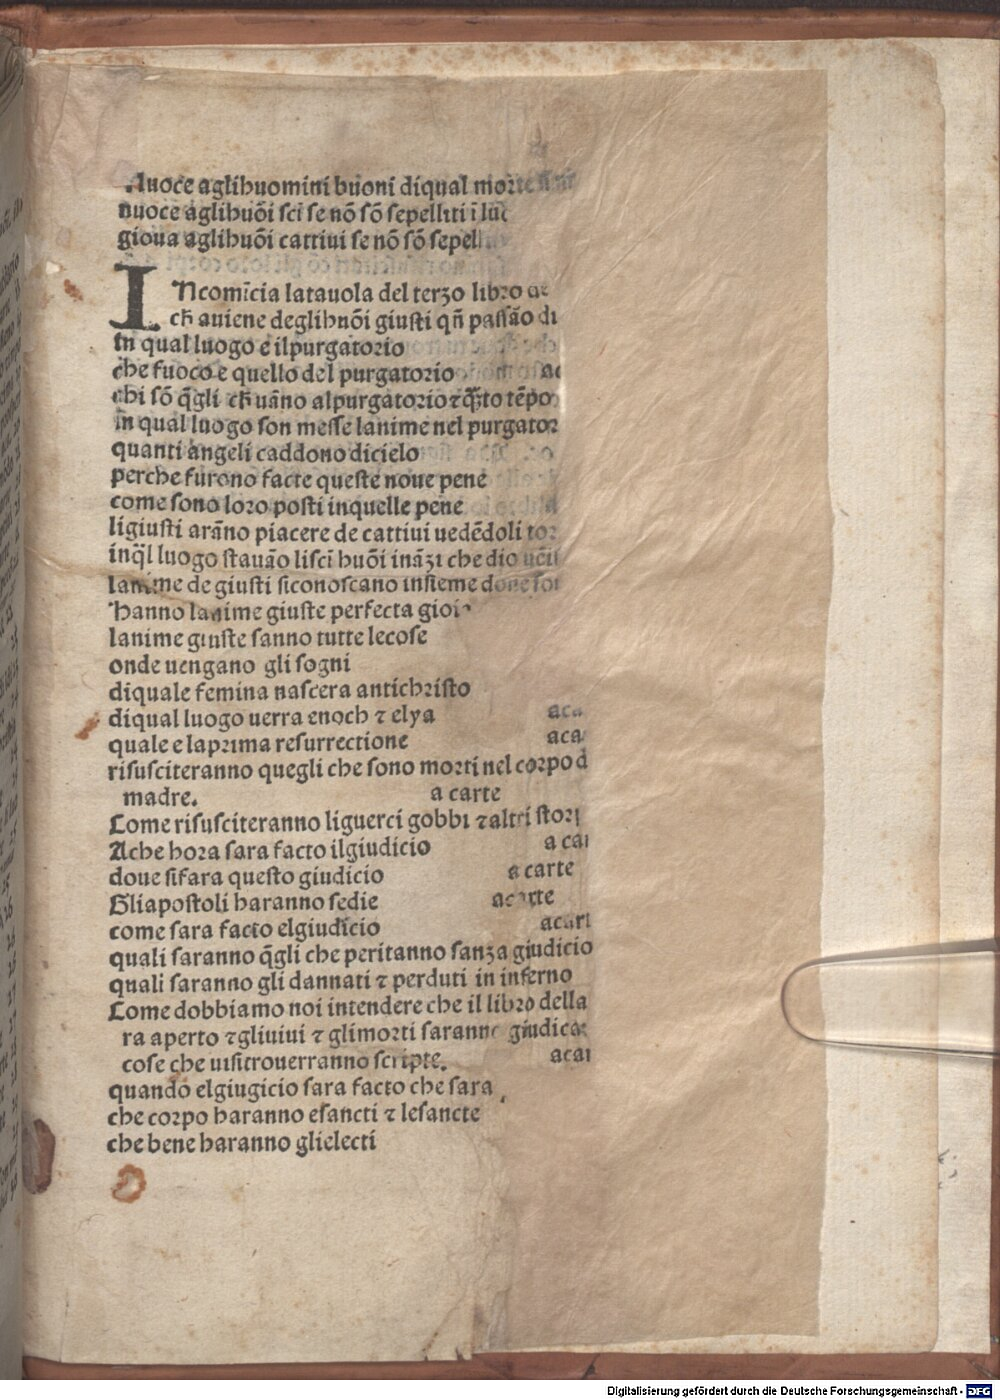 Nuoce aglihuomini buoni diqual morte
nuoce aglihuõi sci se nõ sõ sepelliti ĩ luo
gioua aglihuõi cattiui se nõ sõ sepelli
INcomĩcia latauola del terzo libro de
cħ auiene deglihuõi giusti qñ passão di
In qual luogo e ilpurgatorio
che fuoco e quello del purgatorio ac
chi sõ q̃gli cħ uãno alpurgatorio ⁊ q̃̃to tẽpo
in qual luogo son messe lanime nel purgator
quanti angeli caddono dicielo
perche furono facte queste noue pene
come sono loro posti inquelle pene
ligiusti arãno piacere de cattiui uedẽdoli tor
inq̃l luogo stauão lisci huõi inãzi che dio uẽi
lanime de giusti siconoscano insieme doue so
hanno lanime giuste perfecta gioi
lanime giuste sanno tutte lecose
onde uengano gli sogni
diquale femina nascera antichristo
diqual luogo uerra enoch ⁊ elya aca
quale e laprima resurrectione aca
risusciteranno quegli che sono morti nel corpo d
madre. a carte
Come risusciteranno liguerci gobbi ⁊ altri stor
Ache hora sara facto ilgiudicio a car
doue sifara questo giudicio a carte
Gliapostoli haranno sedie acarte
come sara facto elgiudicio acart
quali saranno q̃gli che peritanno sanza giudicio
quali saranno gli dannati ⁊ perduti in inferno
Come dobbiamo noi intendere che il libro della
ra aperto ⁊ gliuiui ⁊ glimorti saranno giudicat
cose che uisitrouerranno scripte. acar
quando elgiugicio sara facto che sara
che corpo haranno esancti ⁊ lesancte
che bene haranno glielecti
Digitalisierung gefördert durch die Deutsche Forschungsgemeinschaft - DFG